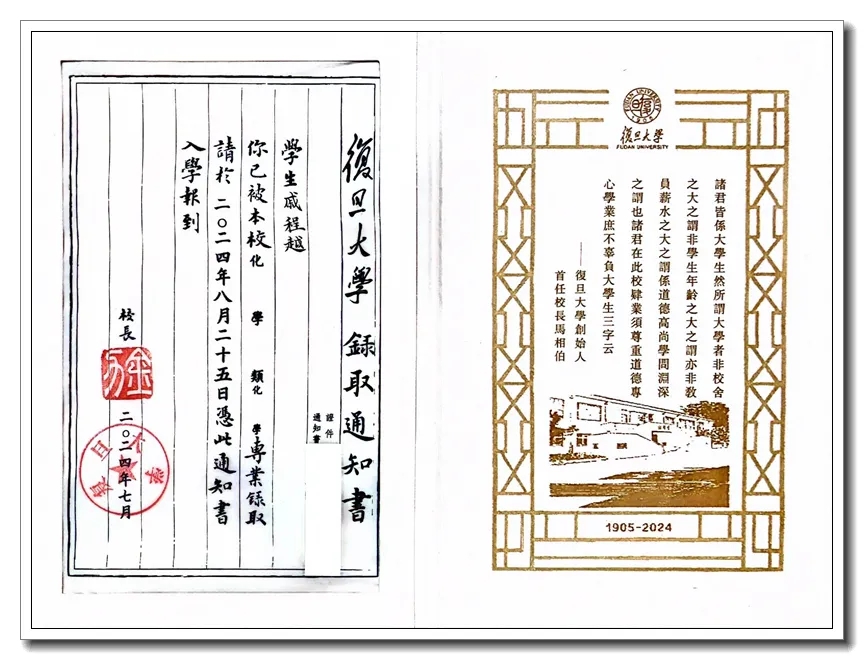 復旦大學 錄取通知書
證件
通知書
學生戚程越
你已被本校化 學 類化 學專業錄取
請於二〇二四年八月二十五日憑此通知書
入學報到
校長
二〇二四年七月
復旦大學
FUDAN UNIVERSITY
1905
復旦大學
FUDAN UNIVERSITY
諸君皆係大學生然所謂大學者非校舍
之大之謂非學生年齡之大之謂亦非敎
員薪水之大之謂係道德高尚學問淵深
之謂也諸君在此校肄業須尊重道德專
心學業庶不辜負大學生三字云
——復旦大學創始人
首任校長馬相伯
1905-2024